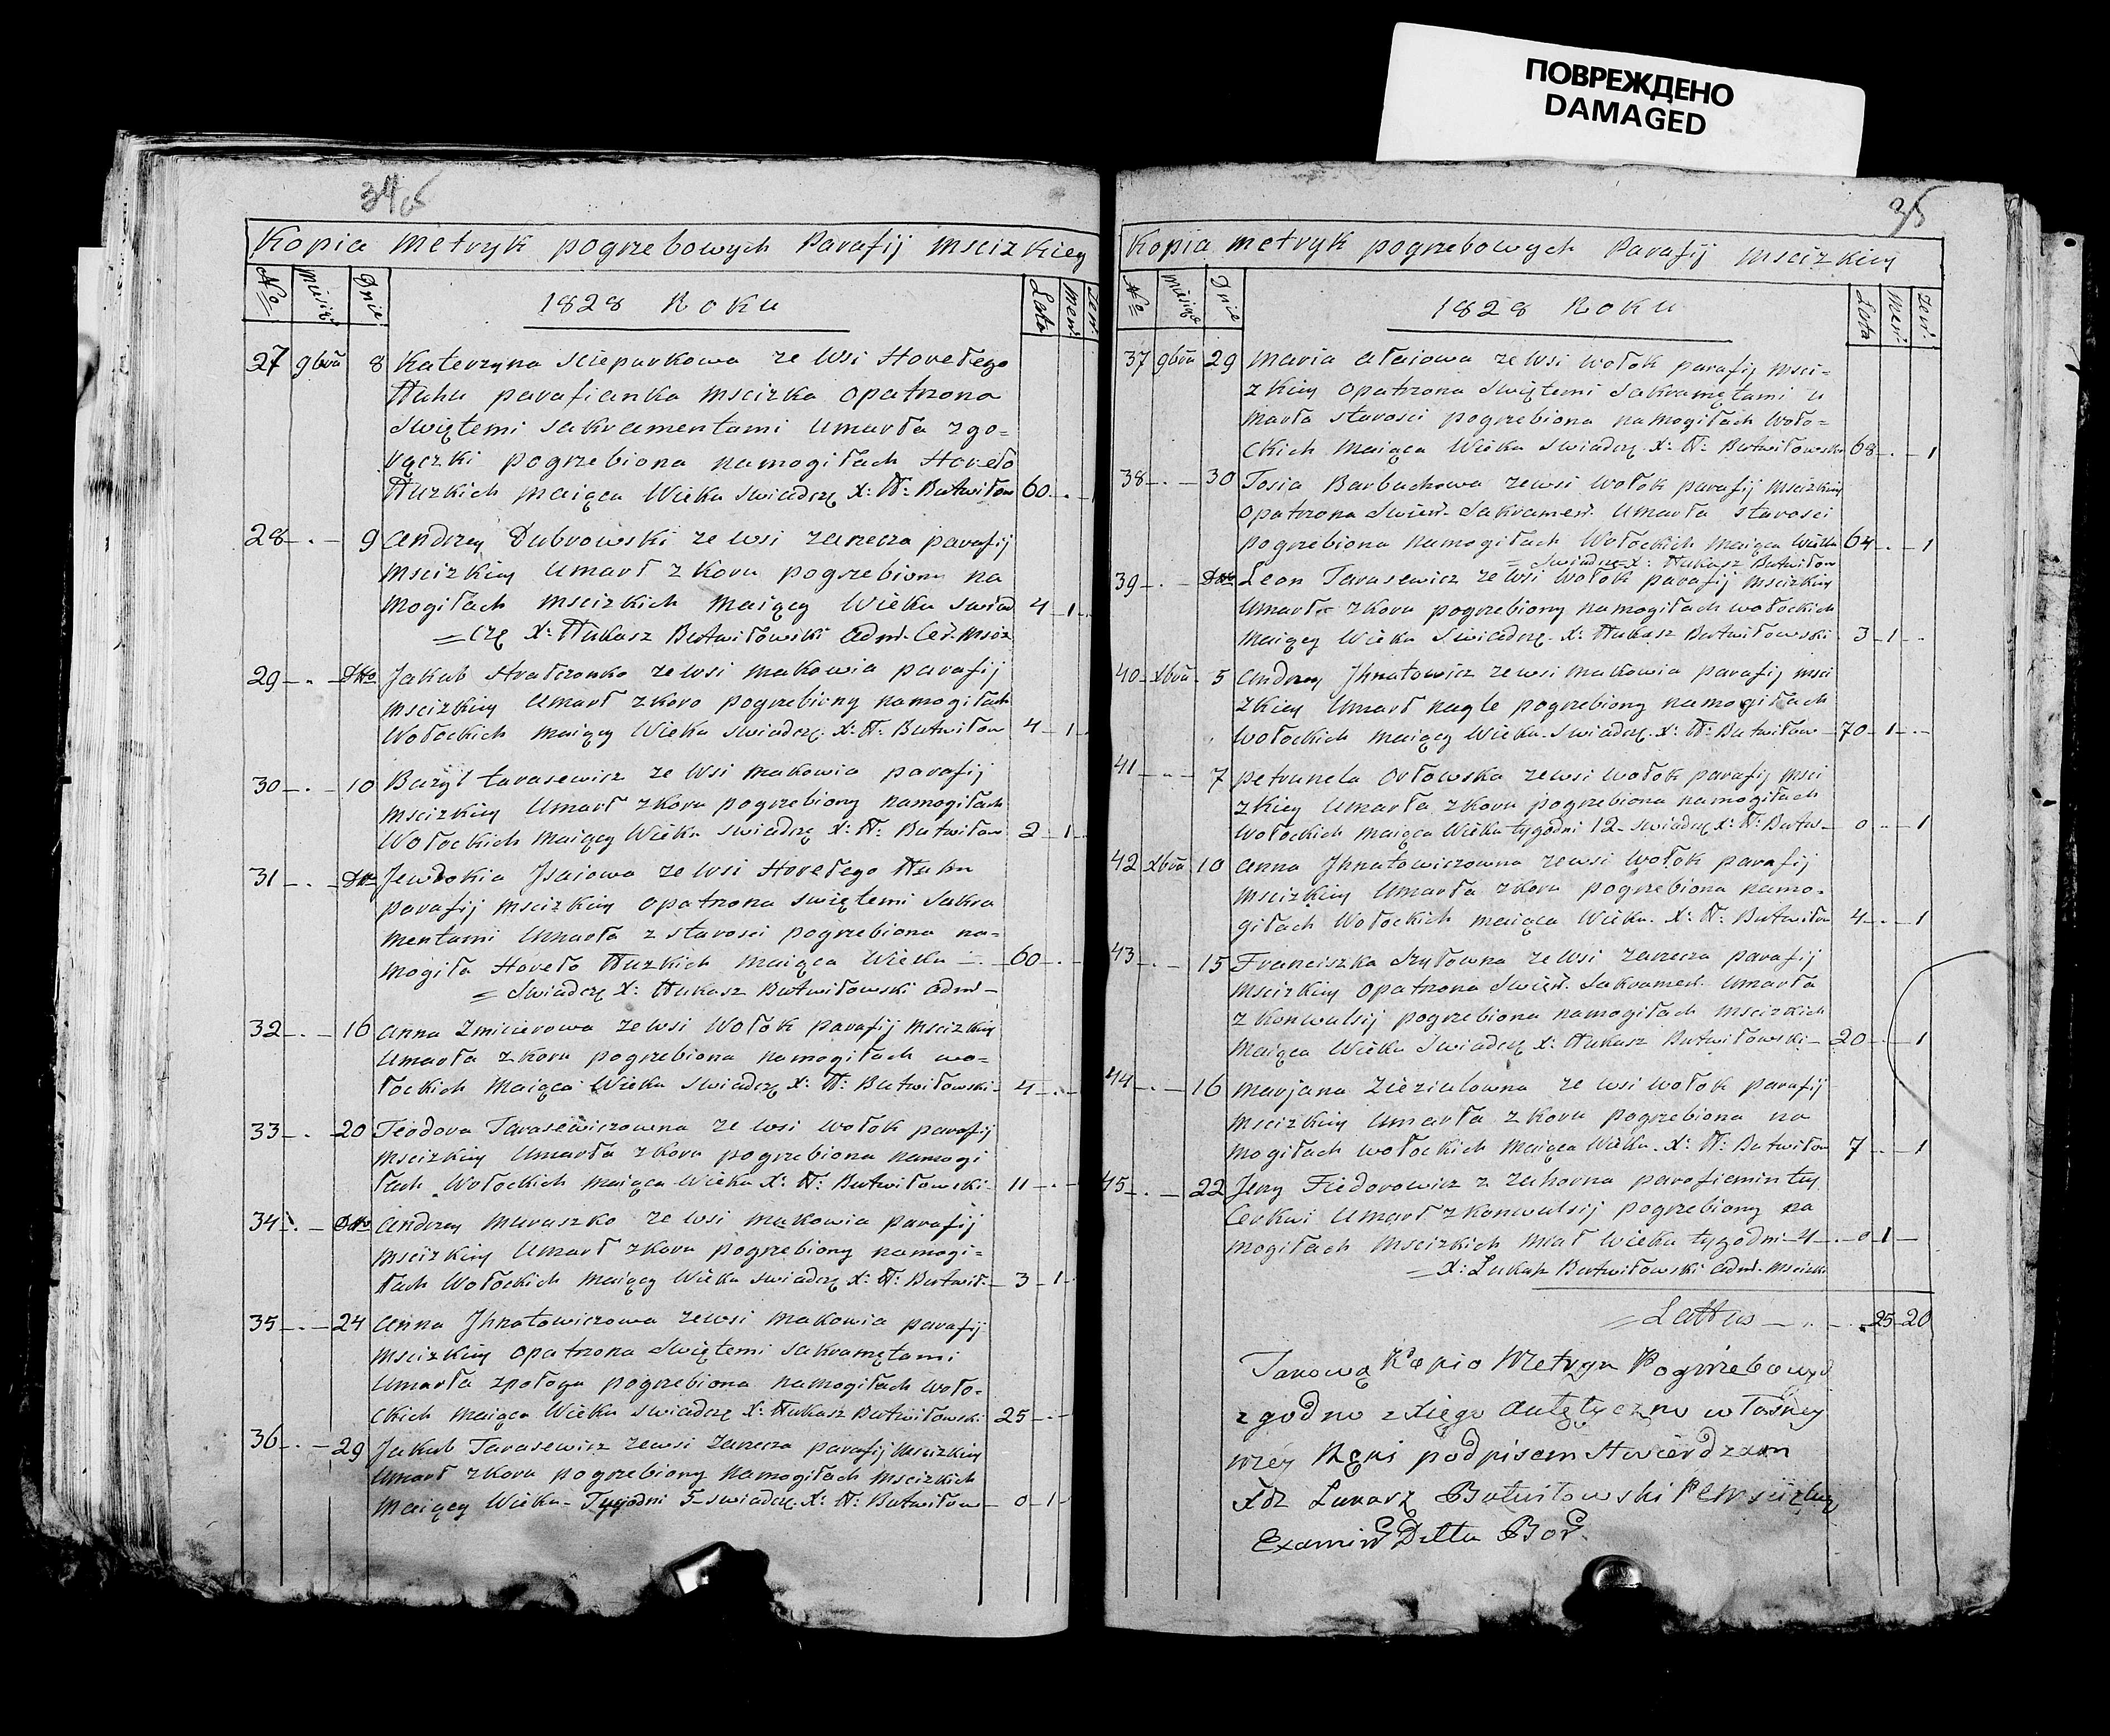 ПОВРЕЖДЕНО
DAMAGED
34
Kopia metryk pogrzebowych Parafij mscizkiey
No Miesiąc Dnie 1828 Roku Lata Men. Zen.
27 9bra 8 Katerzyna Scieparkowa ze wsi Horełego
Łuhu parafianka mscizka opatrzona
Swiętemi sakramentami umarła z go=
rączki pogrzebiona na mogiłach Horeło
Łuzkich maiąca Wieku swiadczę X: Ł: Butwiłow 60 - . -
28 - . - 9 Andrzey Dubrowski ze wsi zarzecza parafij
mscizkiey umarł z koru pogrzebiony na
mogiłach mscizkich maiący Wieku swiad 4 - 1 -
= czę X: Łukasz Butwiłowski adm. Cer. msciz
29 - . - Dtto Jakub Stralczonko ze wsi makowia parafij
mscizkiey umarł z koro pogrzebiony na mogiłach
Wołockich maiący Wieku swiadczę X: Ł: Butwiłow 4 - 1 -
30 - . - 10 Bazyl tarasewicz ze wsi makowia parafij
mscizkiey umarł z koru pogrzebiony na mogiłach
Wołockich maiący Wieku swiadczę X: Ł: Butwiłow 2 - 1 -
31 - . - Dtto Jewdokia Jsaiowa ze wsi Horełego Łuhu
parafij mscizkiey opatrzona swiętemi sakra
mentami umarła z starosci pogrzebiona na=
mogiła Horeło Łuzkich maiąca Wieku - 60 - . -
= Swiadczę X: Łukasz Butwiłowski adm -
32 - . - 16 Anna Zmicierowa ze wsi Wołok parafij mscizkiey
umarła z koru pogrzebiona na mogiłach wo=
łockich maiąca Wieku swiadczę X: Ł: Butwiłowski - 4 - . -
33 - . - 20 Teodora Tarasewiczowna ze wsi wołok parafij
mscizkiey umarła z koru pogrzebiona na mogi
łach Wołockich maiąca Wieku X: Ł: Butwiłowski - 11 - . -
34 - . - Dtto Andrzey Muraszko ze wsi makowia parafij
mscizkiey umarł z koru pogrzebiony na mogi=
łach Wołockich maiący Wieku swiadczę X: Ł: Butwił. - 3 - 1 -
35 - . - 24 Anna Jhnatowiczowa ze wsi makowia parafij
mscizkiey opatrzona Swiętemi sakramętami
umarła z połogu pogrzebiona na mogiłach woło=
ckich maiąca Wieku swiadczę X: Łukasz Butwiłowski 25 - . -
36 - . - 29 Jakub Tarasewicz ze wsi zarzecza parafij mscizkiey
umarł z koru pogrzebiony na mogiłach mscizkich
maiący Wieku - Tygodni 5 - swiadczę X: Ł: Butwiłow - 0 - 1 -
35
Kopia metryk pogrzebowych Parafij mscizkiey
No Miesiąc Dnie 1828 Roku Lata Men. Zen.
37 9bra 29 Maria Ałaiowa ze wsi wołok parafij msci=
zkiey opatrzona Swiętemi sakramętami u
marła starosci pogrzebiona na mogiłach woło=
ckich maiąca Wieku swiadczę X: Ł: Butwiłowski 68 - . - 1
38 - . - 30 Tosia Barbuchowa ze wsi wołok parafij mscizkiey
opatrzona Swień. Sakramen. umarła starosci
pogrzebiona na mogiłach Wołockich maiąca Wieku 64 - . - 1
= Swiadczę X: Łukasz Butwiłow
39 - . - Dtto Leon Tarasewicz ze wsi wołok parafij mscizkiey
umarł z koru pogrzebiony na mogiłach wołockich
maiący Wieku Swiadczę X: Łukasz Butwiłowski - 3 - 1 - .
40 - xbra - 5 Andrzey Jhnatowicz ze wsi makowia parafij msci
zkiey umarł nagle pogrzebiony na mogiłach
wołockich maiący Wieku - Swiadczę X: Ł: Butwiłow - 70 - 1 - . -
41 - . - 7 petrunela Orłowska ze wsi wołok parafij msci
zkiey umarła z koru pogrzebiona na mogiłach
wołockich maiąca Wieku tygodni 12 - swiadczę X: Ł: Butw - 0 - . - 1
42 xbra 10 Anna Jhnatowiczowna ze wsi wołok parafij
mscizkiey umarła z koru pogrzebiona na mo=
giłach Wołockich maiąca Wieku - X: Ł: Butwiłow 4 - . - 1
43 - . - 15 Franciszka Szyłowna ze wsi zarzecza parafij
mscizkiey opatrzona Swień. Sakramen. umarła
z konwulsij pogrzebiona na mogiłach mscizkich
maiąca Wieku Swiadczę X: Łukasz Butwiłowski - 20 - . - 1
44 - . - 16 Marjana Zieziulowna ze wsi wołok parafij
mscizkiey umarła z koru pogrzebiona na
mogiłach wołockich maiąca Wieku - X: Ł: Butwiłow 7 - . - 1
45 - . - 22 Jerzy Fiedorowicz z Zahorna parafiemin tey
Cerkwi umarł z konwulsij pogrzebiony na
mogiłach mscizkich miał Wieku tygodni - 4 - . - 0 1 -
= X: Łukasz Butwiłowski adm. mscizki
= Lattus - . - . 25 - 20
Tanową Kopio Metryn Pogrzebowych
zgodno z xięgo Autętyczno własney
mey Ręki podpisem Stwierdzam
Xdz Lukasz Butwiłowski